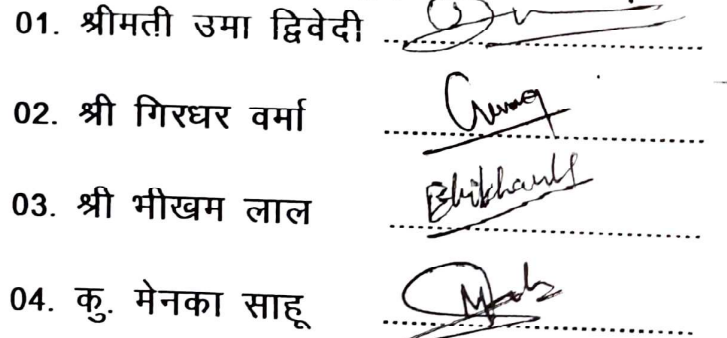 01. श्रीमती उमा द्विवेदी
02. श्री गिरधर वर्मा
03. श्री भीखम लाल
04. कु. मेनका साहू